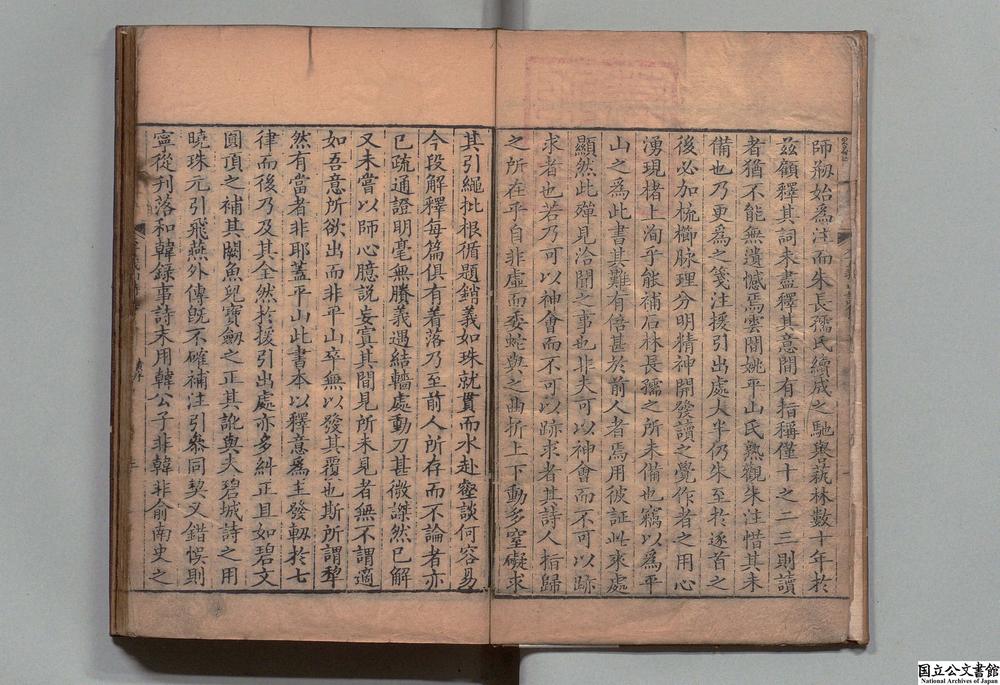 師刱始為注而朱長孺氏續成之馳與蓺林數十年於
茲顧釋其詞未盡釋其意間有指稱僅十之二三則讀
者猶不能無遺憾焉雲間姚平山氏熟觀朱注惜其未
備也乃更為之箋注援引出處大半仍朱至於逐首之
後必加梳櫛脉理分明精神開發讀之覺作者之用心
湧現楮上洵乎能補石林長孺之所未備也竊以為平
山之為此書其難有倍甚於前人者焉用彼証此來處
顯然此殫見洽聞之事也非夫可以神會而不可以跡
求者也若乃可以神會而不可以跡求者其詩人指歸
之所在乎自非虛而委蛇與之曲折上下動多窒礙求
其引繩批根循題銷義如珠就貫而水赴壑談何容易
今段解釋每篇俱有着落乃至前人所存而不論者亦
已疏通證明毫無賸義遇結轖處動刀甚微謋然已解
又未嘗以師心臆説妄寘其間見所未見者無不謂適
如吾意所欲出而非平山卒無以發其覆也斯所謂犂
然有當者非耶蓋平山此書本以釋意為主發軔於七
律而後乃及其全然於援引出處亦多糾正且如碧文
圓頂之補其闕魚兒寶劒之正其訛與夫碧城詩之用
曉珠元引飛燕外傳旣不確補注引叅同契又錯悞則
寧從刋落和韓録事詩末用韓公子非韓非俞南史之
国立公文書館
National Archives of Japan